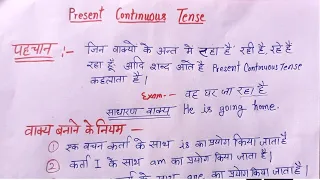 Present Continuous Tense
पहचान :- जिन वाक्यो के अन्त मे रहा है रही है, रहे है
रहा हूँ आदि शब्द आते है Present Continuous Tense
कहलाता है।
Exam:- वह घर जा रहा है
साधारण वाक्य He is going home.
वाक्य बनाने के नियम -
① एक बचन कर्ता के साथ is का प्रयोग किया जाता है
② कर्ता I के साथ am का प्रयोग किया जाता है।
कर्ता के साथ are का प्रयोग किया जाता है।